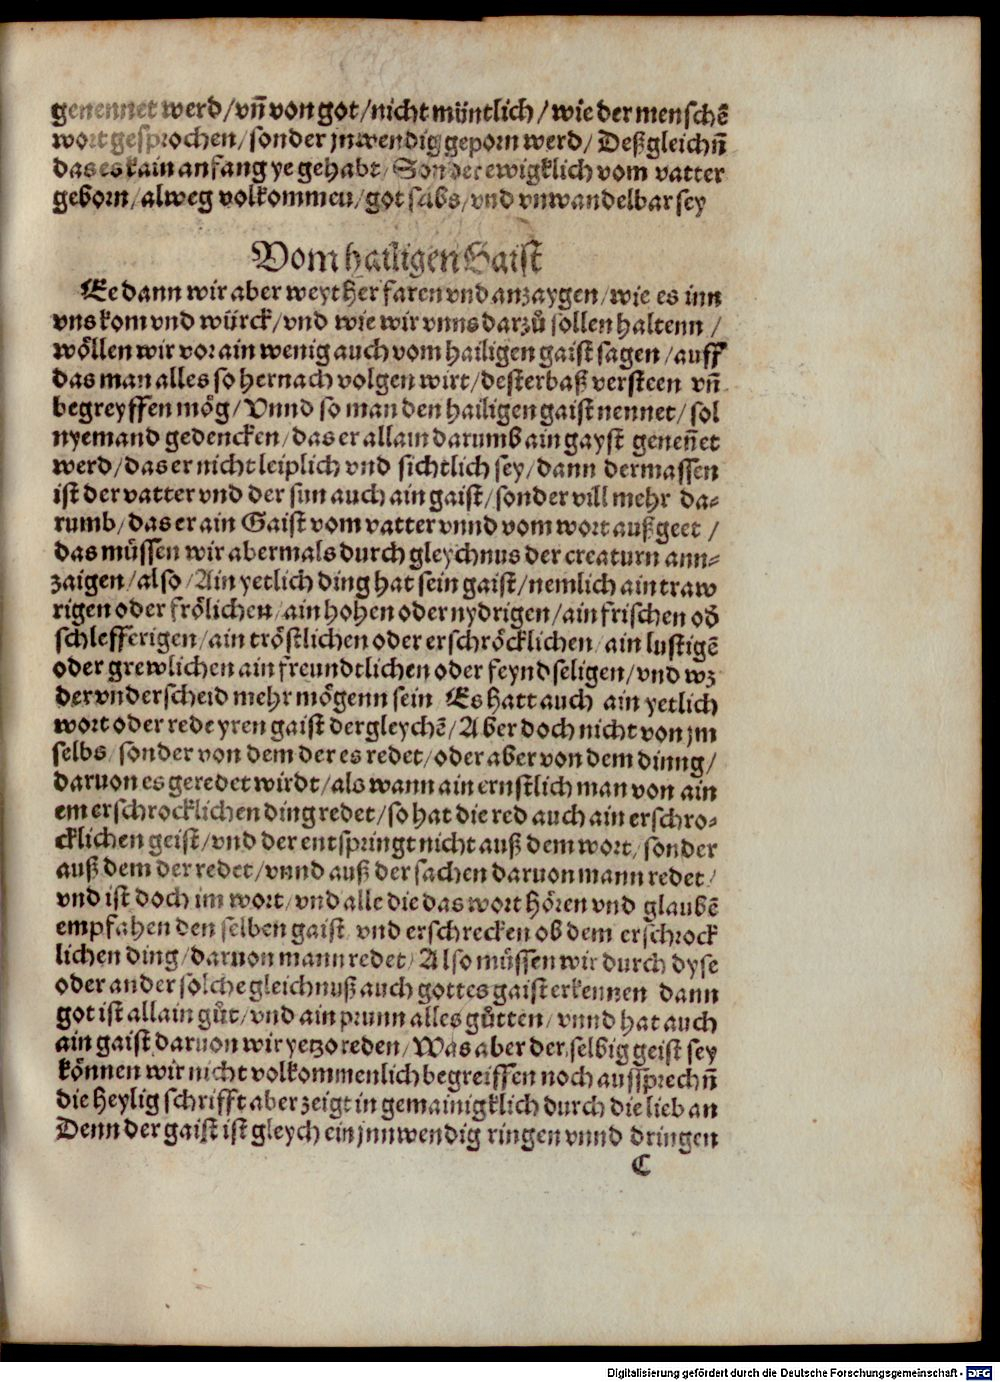 genennet werd/vn̄ von got/nicht müntlich/wie der menschē
wort gesprochen/sonder jnwendig geporn werd/Deßgleichn̄
das es kain anfang ye gehabt/Sonder ewigklich vom vatter
geborn/alweg volkommen/got selbs/vnd vnwandelbar sey
Vom hailigen Gaist
Ee dann wir aber weyt her faren vnd anzaygen/wie es inn
vns kom vnd würck/vnd wie wir vnns darzů sollen haltenn/
wöllen wir vor ain wenig auch vom hailigen gaist sagen/auff
das man alles so hernach volgen wirt/desterbaß versteen vn̄
begreyffen mög/Vnnd so man den hailigen gaist nennet/sol
nyemand gedencken/das er allain darumb ain gayst genen̄et
werd/das er nicht leiplich vnd sichtlich sey/dann dermassen
ist der vatter vnd der sun auch ain gaist/sonder vill mehr da⸗
rumb/das er ain Gaist vom vatter vnnd vom wort außgeet/
das müssen wir abermals durch gleychnus der creaturn ann⸗
zaigen/also/Ain yetlich ding hat sein gaist/nemlich ain traw
rigen oder frölichen/ain hohen oder nydrigen/ain frischen od̄
schlefferigen/ain tröstlichen oder erschröcklichen/ain lustigē
oder grewlichen ain freundtlichen oder feyndseligen/vnd wz
der vnderscheid mehr mögenn sein Es hatt auch ain yetlich
wort oder rede yren gaist dergleychē/Aber doch nicht von jm
selbs/sonder von dem der es redet/oder aber von dem dinng/
daruon es geredet wirdt/als wann ain ernstlich man von ain
em erschrocklichen ding redet/so hat die red auch ain erschro⸗
cklichen geist/vnd der entspringt nicht auß dem wort/sonder
auß dem der redet/vnnd auß der sachen daruon mann redet/
vnd ist doch im wort/vnd alle die das wort hören vnd glaubē
empfahen den selben gaist vnd erschrecken ob dem erschrock
lichen ding/daruon mann redet/Also müssen wir durch dyse
oder ander solche gleichnuß auch gottes gaist erkennen dann
got ist allain gůt/vnd ain prunn alles gůtten/vnnd hat auch
ain gaist daruon wir yetzo reden/Was aber der selbig geist sey
können wir nicht volkommenlich begreiffen noch aussprechn̄
die heylig schrifft aber zeigt in gemainigklich durch die lieb an
Denn der gaist ist gleych ein jnnwendig ringen vnnd dringen
C
Digitalisierung gefördert durch die Deutsche Forschungsgemeinschaft - DFG